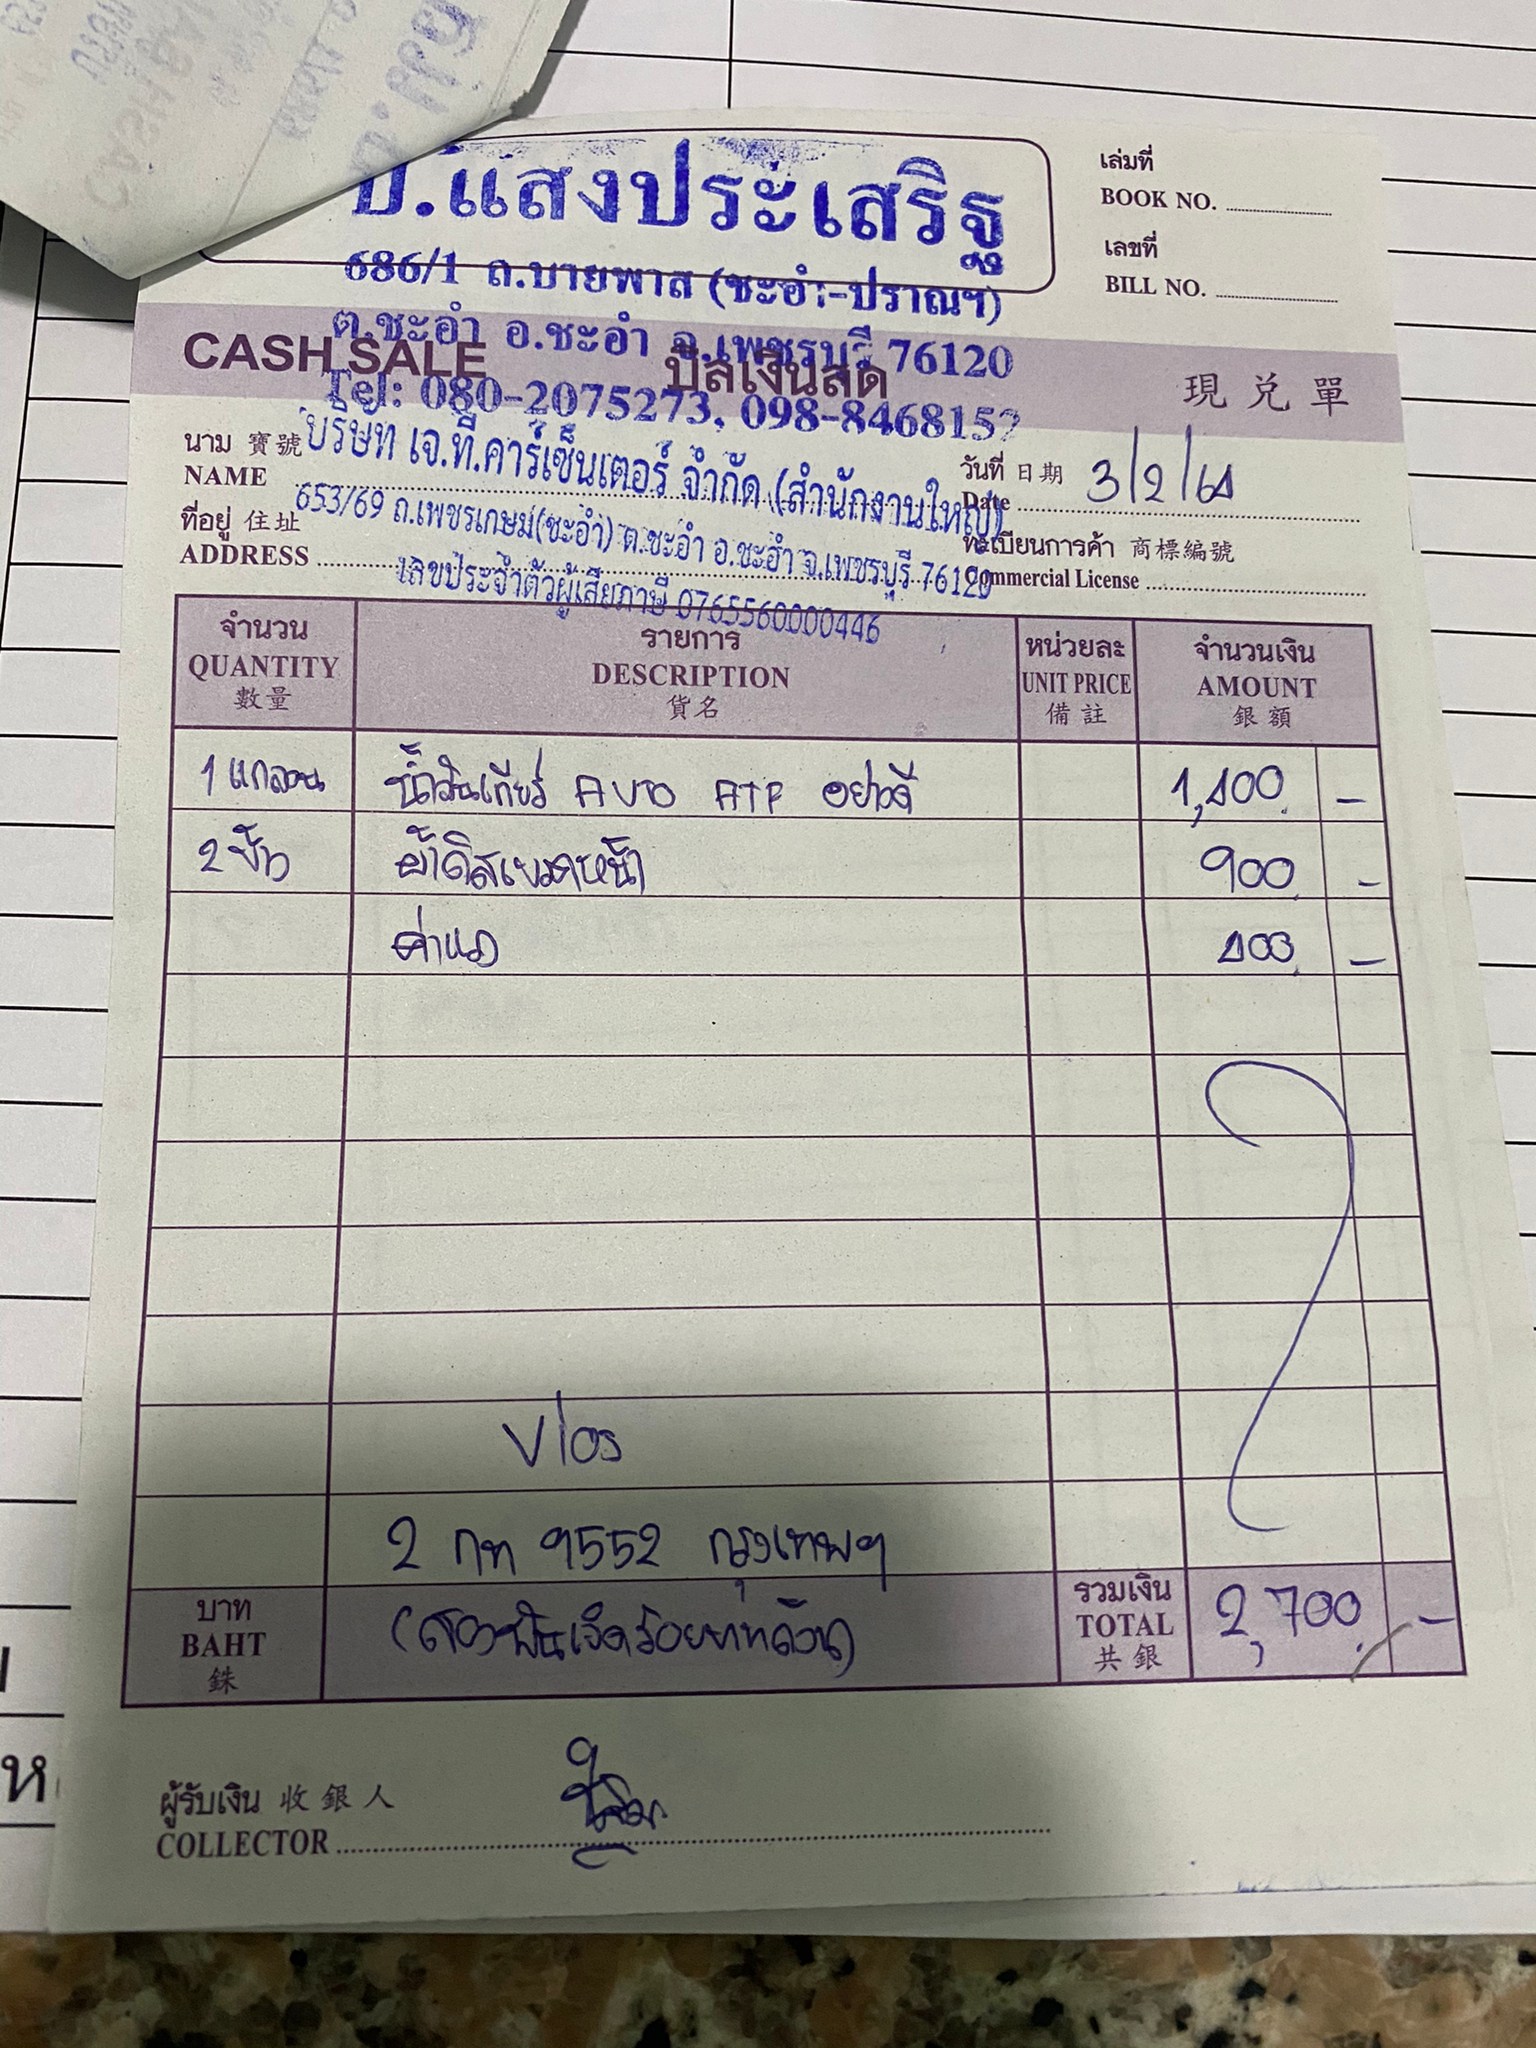 ป.แสงประเสริฐ
686/1 ถ.บายพาส (ชะอำ-ปราณฯ)
ต.ชะอำ อ.ชะอำ จ.เพชรบุรี 76120
Tel: 080-2075273, 098-8468152
เล่มที่
BOOK NO.
เลขที่
BILL NO.
CASH SALE บิลเงินสด 現兑單
นาม 寶號 บริษัท เจ.ที.คาร์เซ็นเตอร์ จำกัด (สำนักงานใหญ่)
NAME
วันที่ 日期 3/2/64
Date
ที่อยู่ 住址 653/69 ถ.เพชรเกษม(ชะอำ) ต.ชะอำ อ.ชะอำ จ.เพชรบุรี 76120
ADDRESS
ทะเบียนการค้า 商標編號
Commercial License
เลขประจำตัวผู้เสียภาษี 0765560000446
จำนวน รายการ หน่วยละ จำนวนเงิน
QUANTITY DESCRIPTION UNIT PRICE AMOUNT
數量 貨名 備註 銀額
1 แกลอน น้ำมันเกียร์ AUTO ATF อย่างดี 1,400 -
2 ข้าง ผ้าดิสเบรคหน้า 900 -
ค่าแรง 400 -
Vios
2 กท 9552 กรุงเทพฯ
บาท
BAHT
銖
(สองพันเจ็ดร้อยบาทถ้วน)
รวมเงิน
TOTAL
共銀
2,700 -
ผู้รับเงิน 收銀人
COLLECTOR